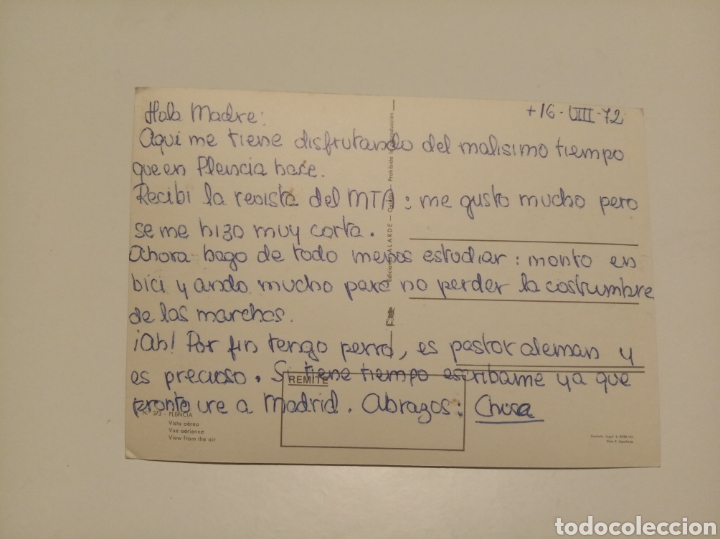 +16-VIII-72
Hola Madre:
Aqui me tiene disfrutando del malisimo tiempo
que en Plencia hace.
Recibi la revista del MTA: me gusto mucho pero
se me hizo muy corta.
Ahora hago de todo menos estudiar: monto en
bici y ando mucho para no perder la costumbre
de las marchas.
¡Ah! Por fin tengo perro, es pastor aleman y
es precioso. Si tiene tiempo escribame ya que
pronto ire a Madrid. Abrazos: Chusa
REMITE
PLENCIA
Vista aérea
Vue aérienne
View from the air
todocoleccion
todocoleccion.net